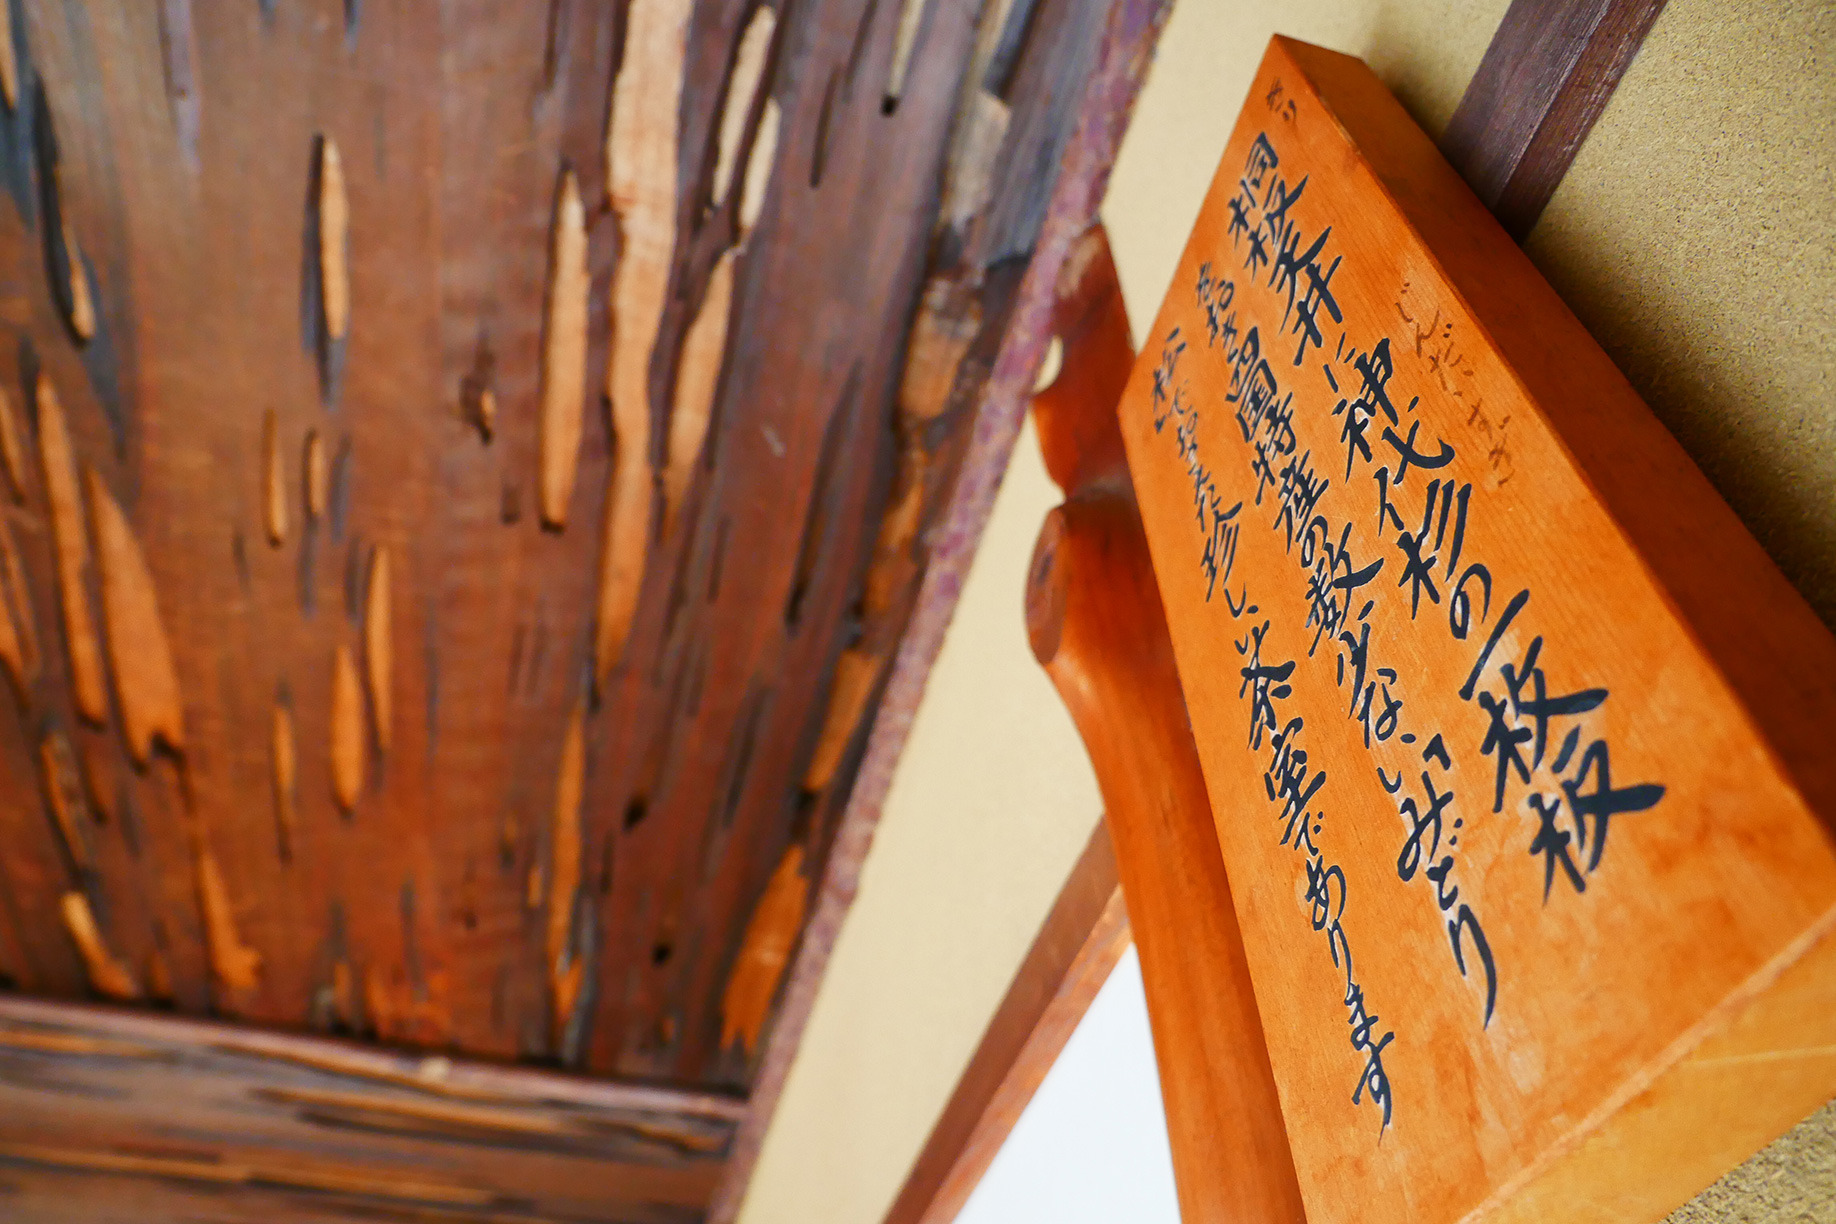 じんだいすぎ
桐板天井に神代杉の一枚板
四国特産の数少ない「みどり
松」で 珍しい茶室であります